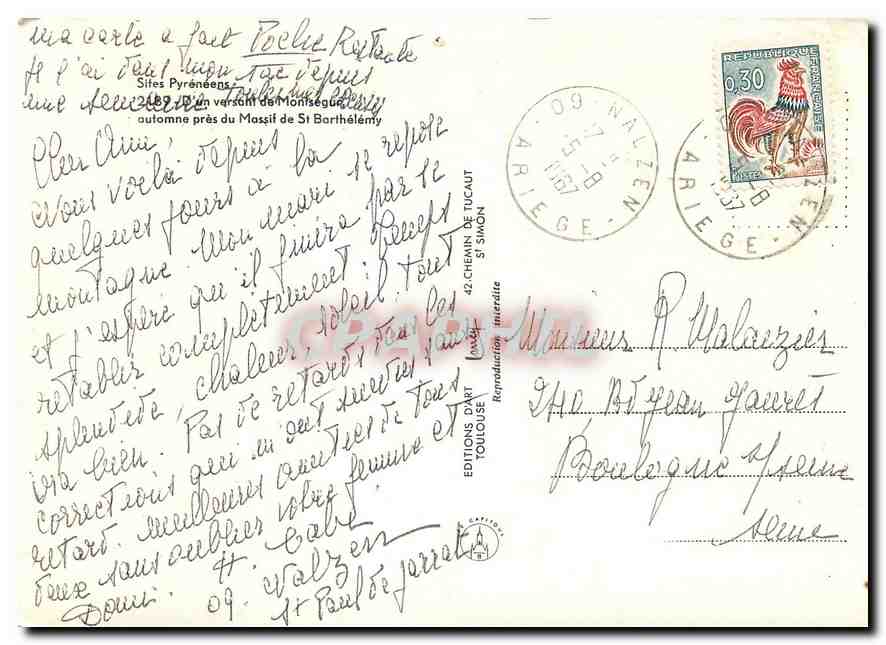 ma carte a fait Poche Restante
je l'ai dans mon sac depuis
une semaine Toujours
Sites Pyrénéens
2489 - D'un versant de Montségur
automne près du Massif de St Barthélémy
Cher Ami,
Nous voilà depuis
quelques jours à la
montagne Mon mari se repose
et j'espère qu'il finira par se
rétablir complètement; temps
splendide, chaleur, soleil, tout
ira bien. Pas de retards dans les
corrections qui m'ont suivies sans
retard. Meilleures amitiés de tous
deux sans oublier votre femme et
H.
09. Nalzen
St Paul de Jarrat
EDITIONS D'ART
TOULOUSE
42, CHEMIN DE TUCAUT
ST SIMON
Reproduction interdite
CAPITOUL
09 - NALZEN
ARIEGE
5-8
1967
REPUBLIQUE FRANCAISE
0,30
POSTES
ARIEGE
1967
Monsieur R Malavzier
240 Bd Jean Jaurès
Boulogne s/seine
Seine
CPAPHIL